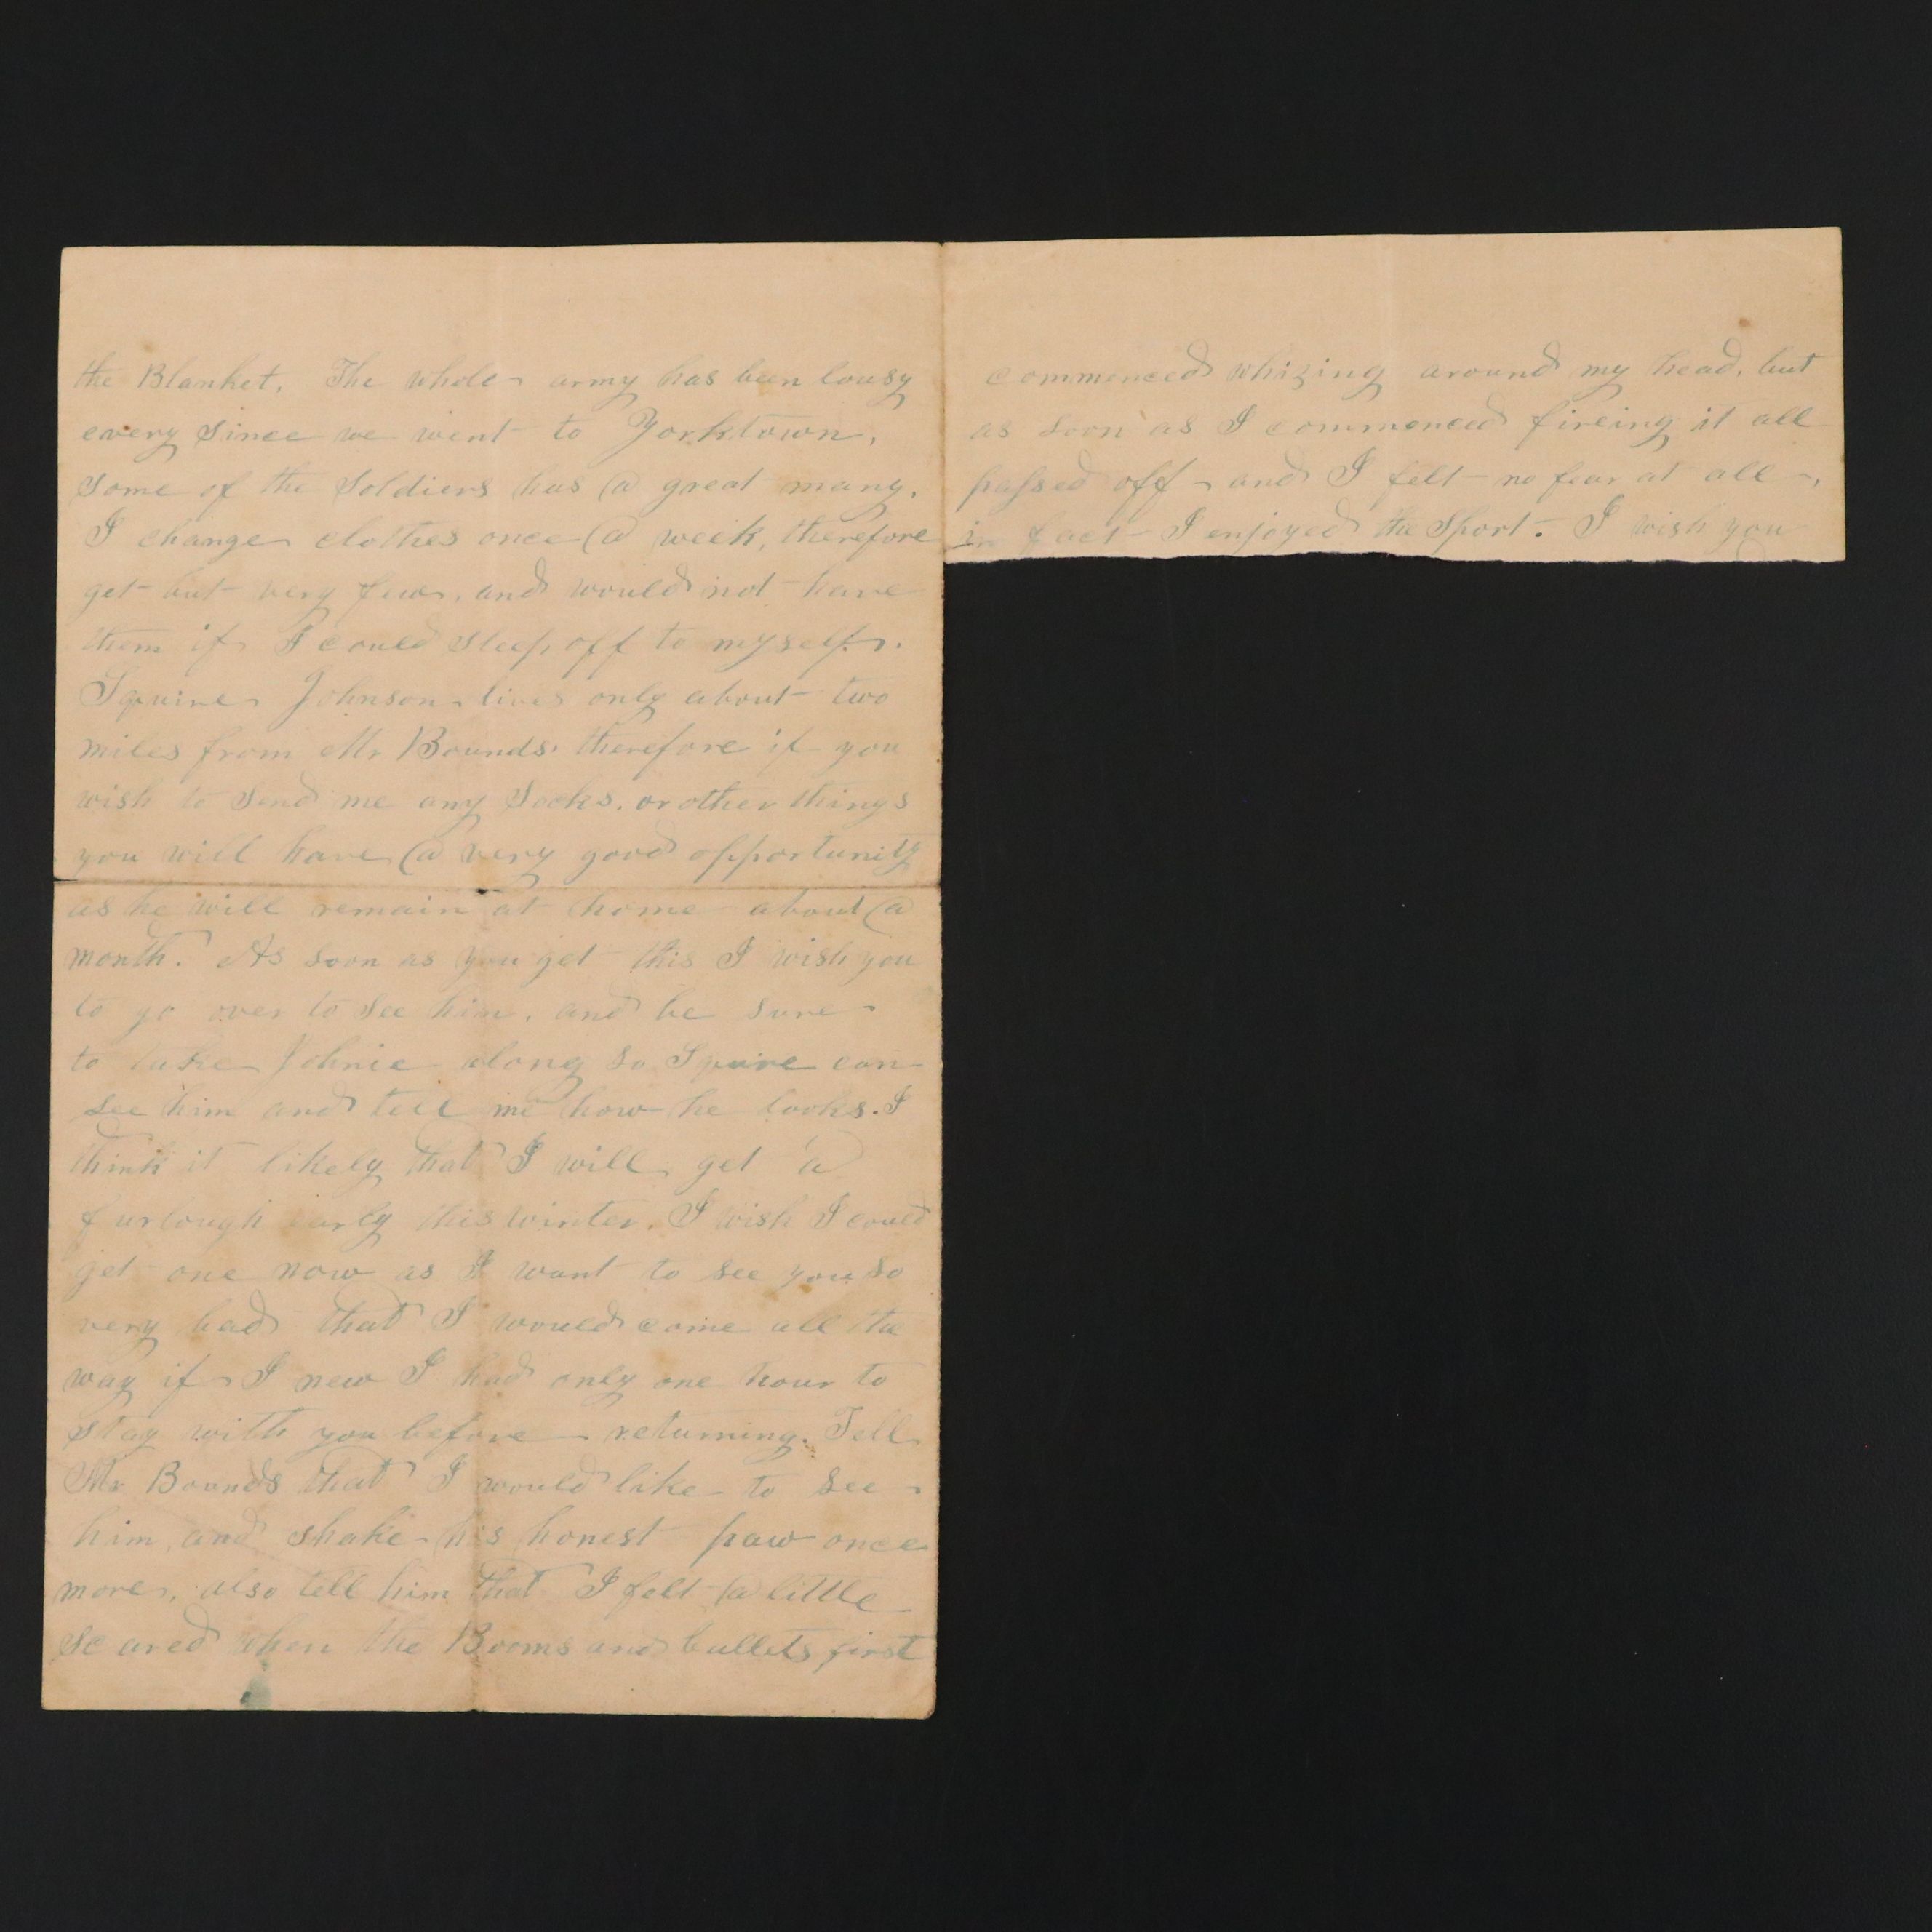 the Blanket. The whole army has been lousy
every since we went to Yorktown,
some of the Soldiers has a great many.
I change clothes once a week, therefore
get but very few, and would not have
them if I could sleep off to myself.
Squire Johnson lives only about two
miles from Mr Bounds. therefore if you
wish to send me any Socks, or other things
you will have a very good opportunity
as he will remain at home about a
month. As soon as you get this I wish you
to go over to see him, and be sure
to take Johnie along so Squire can
see him and tell me how he looks. I
think it likely that I will get a
furlough early this winter. I wish I could
get one now as I want to see you so
very bad that I would come all the
way if I new I had only one hour to
stay with you before returning. Tell
Mr Bounds that I would like to see
him and shake his honest paw once
more, also tell him that I felt a little
scared when the Booms and bullets first
commenced whizing around my head, but
as soon as I commenced fireing it all
passed off and I felt no fear at all,
in fact I enjoyed the Sport. I wish you